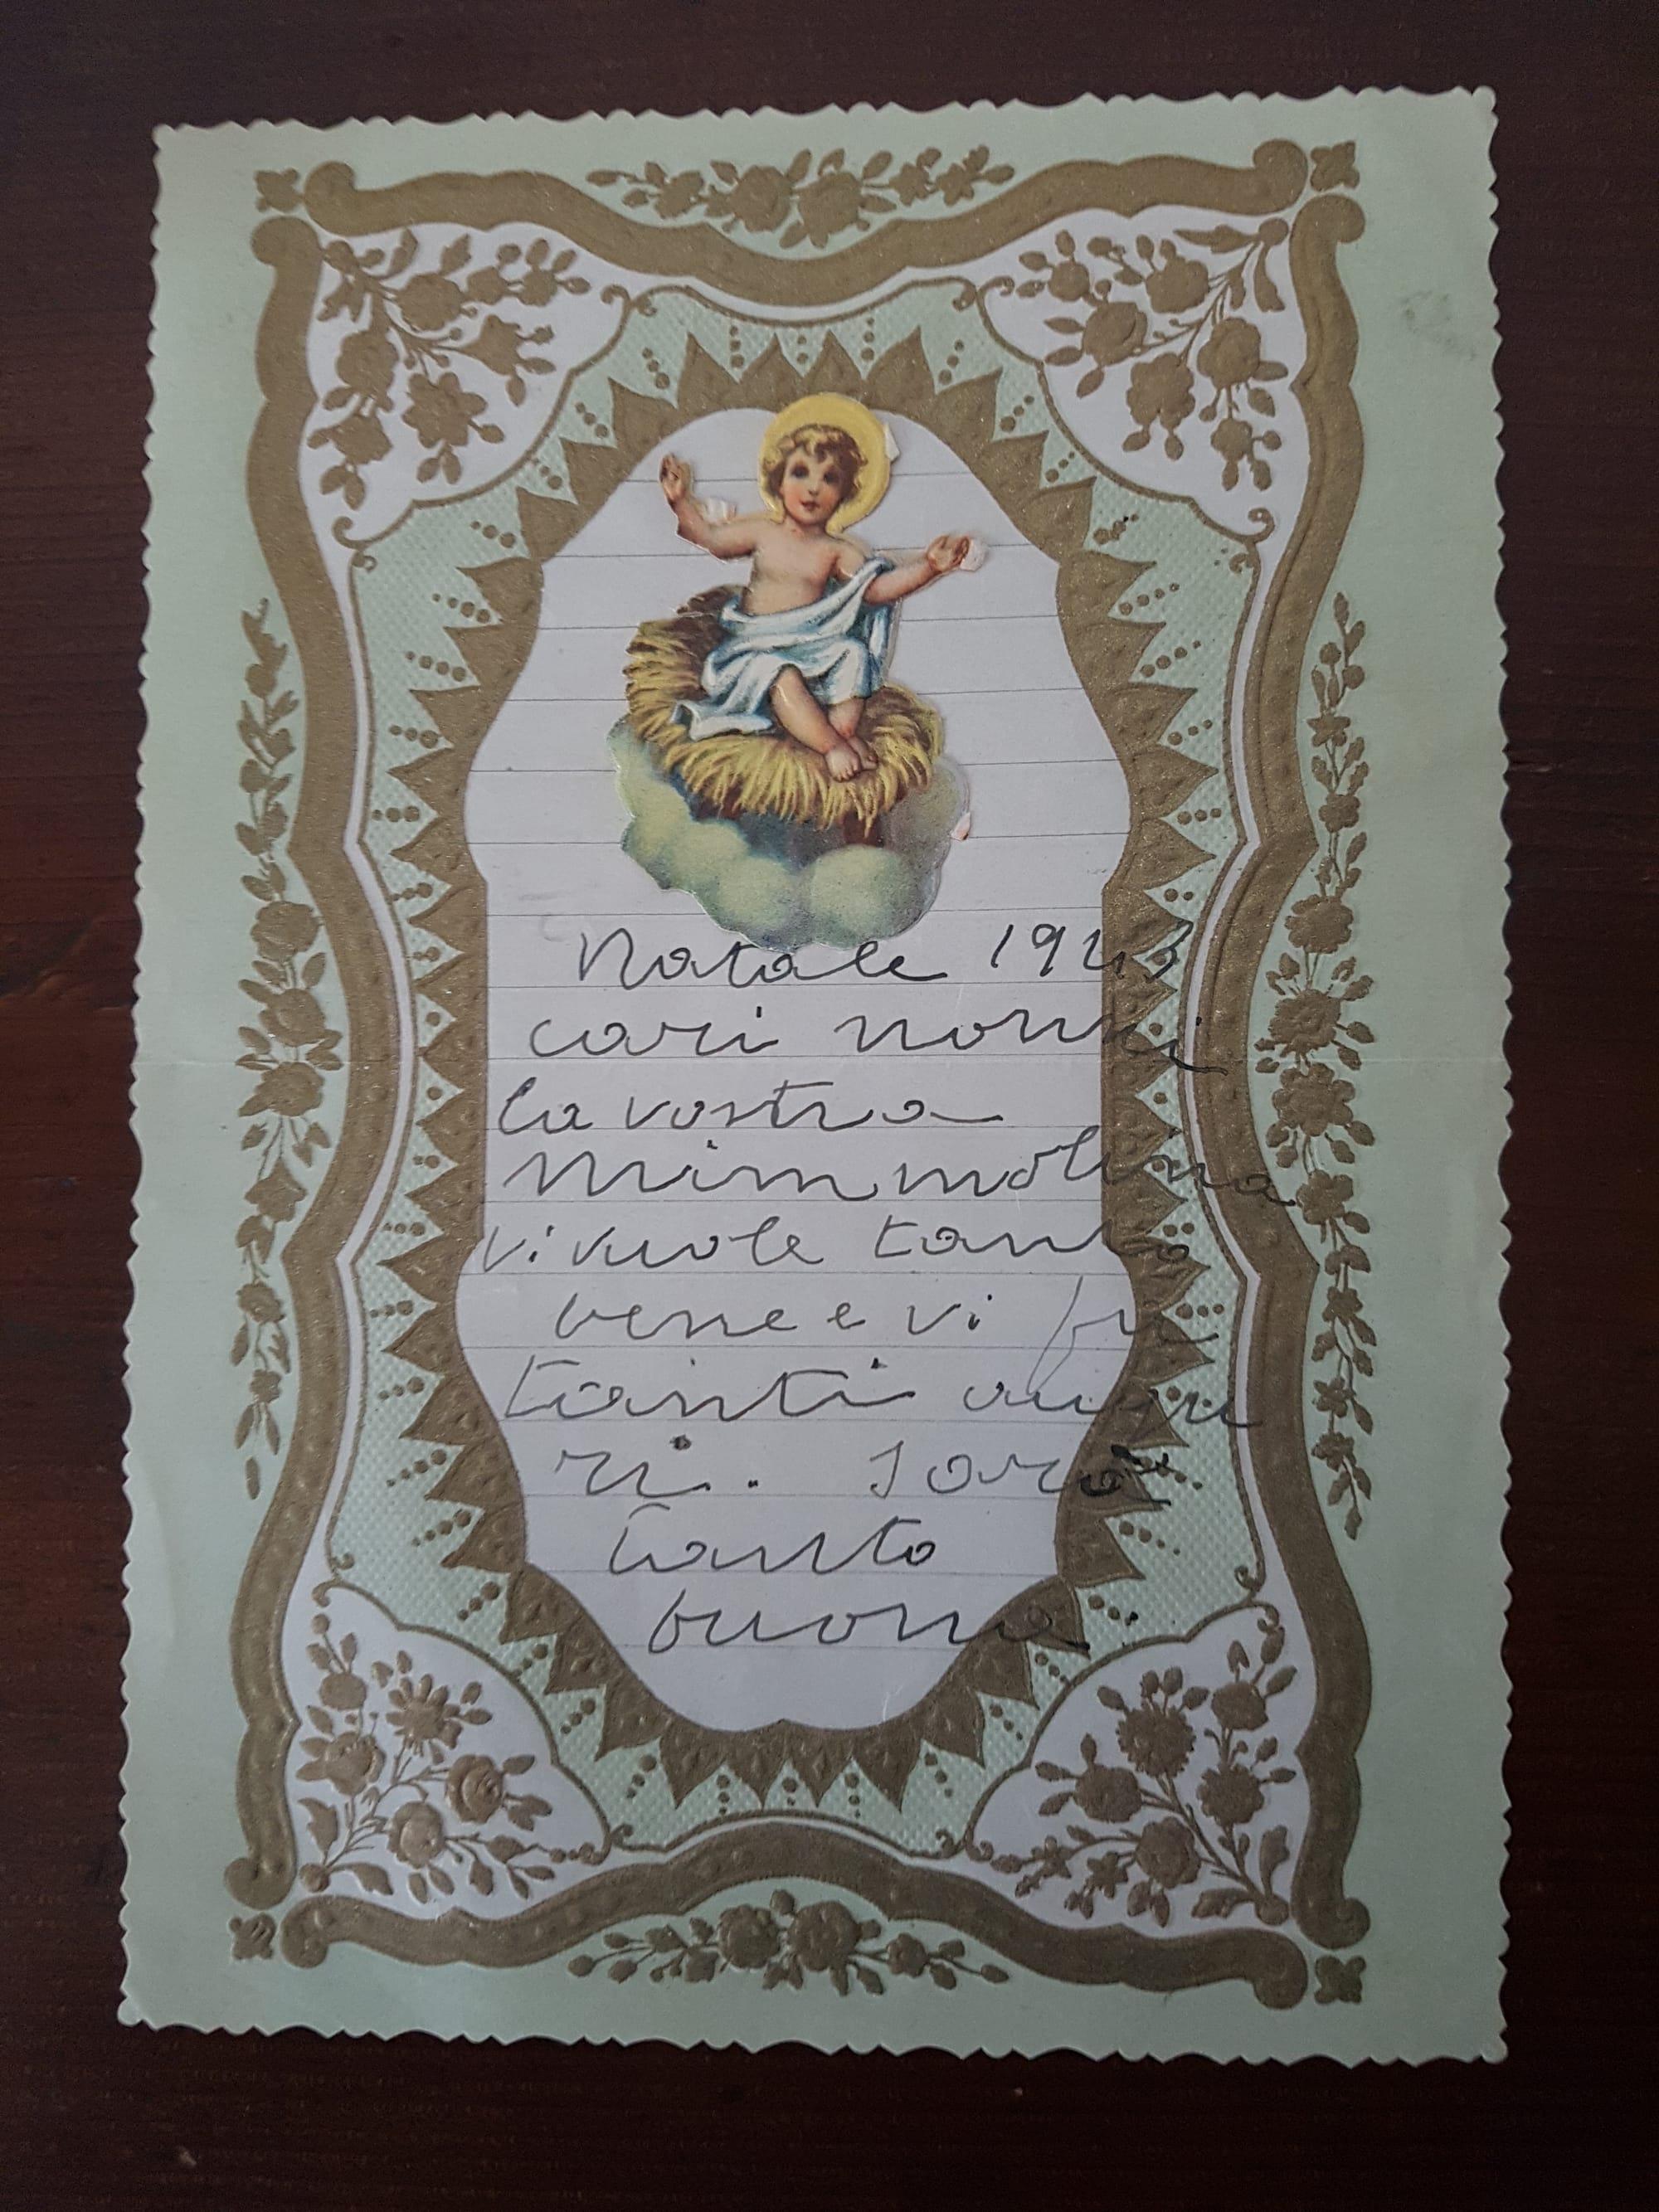 Natale 1943
cari nonni
la vostra
mimmolina
vi vuole tanto
bene e vi fa
tanti augu
ri. Sarò
tanto
buona.